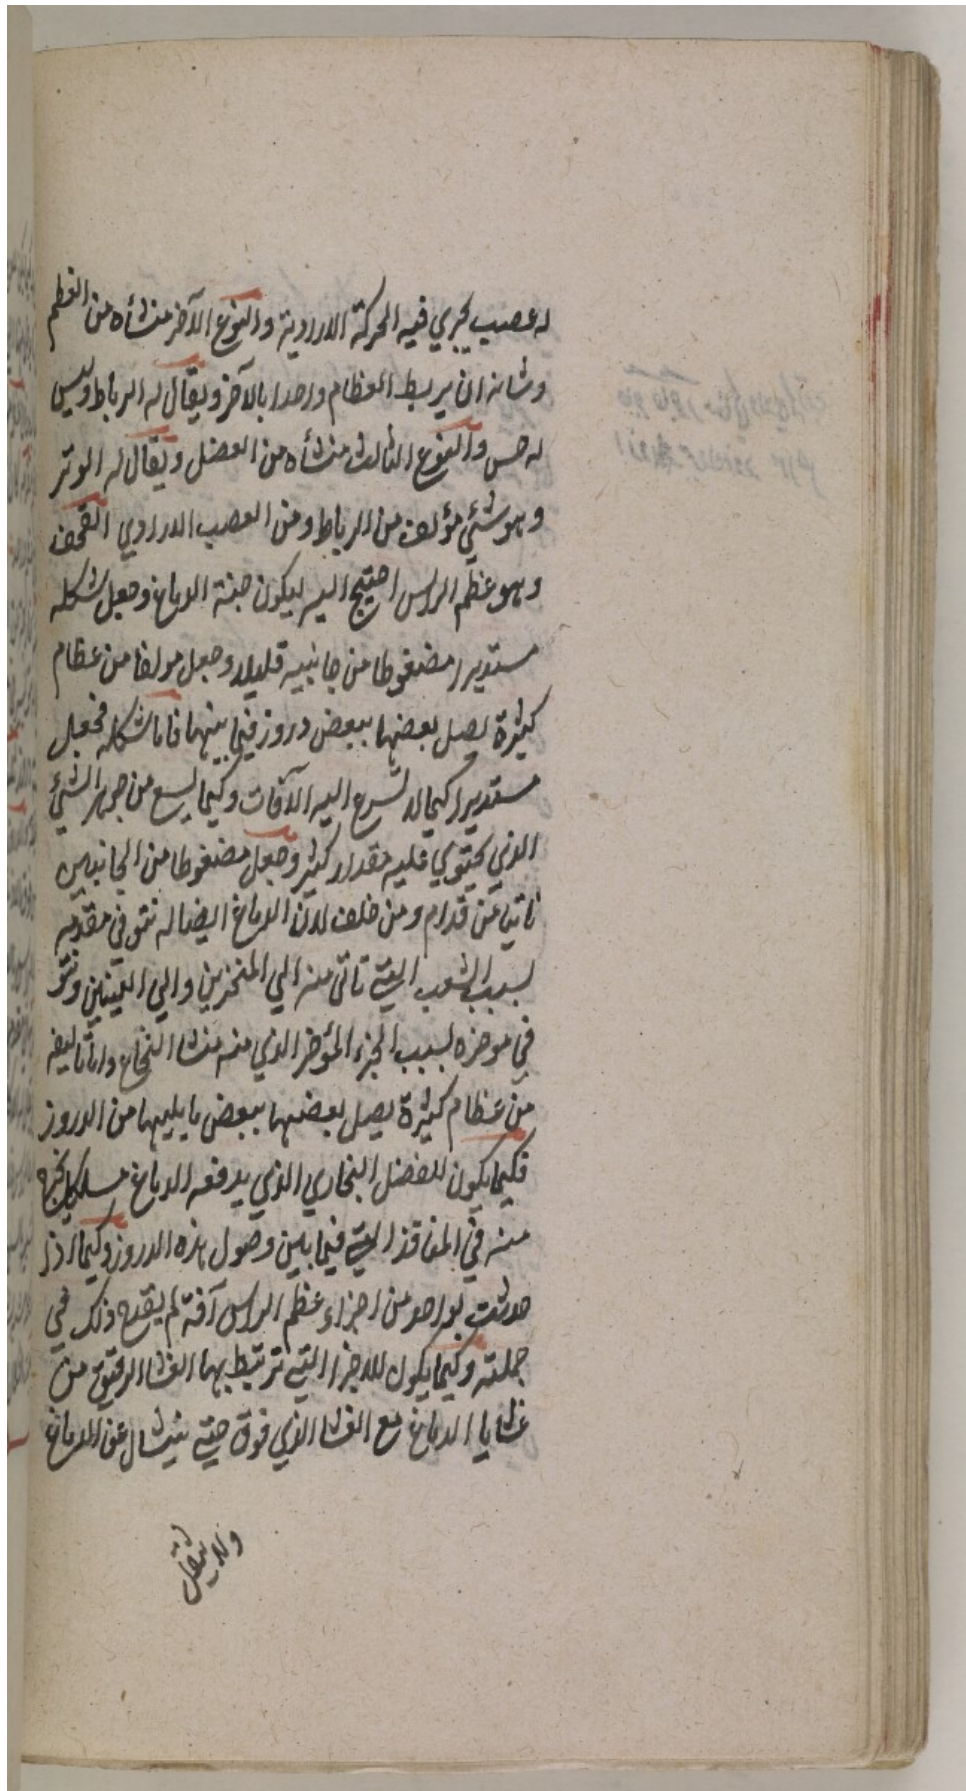 له عصب يجري فيه الحركة الارادية والنوع الآخر منشأه من العظم
وشانه ان يربط العظام واحدا بالآخر ويقال له الرباط وليس
له حس والنوع الثالث منشأه من العضل ويقال له الوتر
وهو شئ مؤلف من الرباط ومن العصب الارادي القحف
وهو عظم الراس احتيج اليه ليكون جنة الدماغ وجعل شكله
مستديرا مضغوطا من جانبيه قليلا وجعل مولفا من عظام
كثيرة يصل بعضها ببعض دروز فيما بينها فاما شكله فجعل
مستديرا كيما لا تسرع اليه الآفات وكيما يسع من جوهر الشئ
الذي يحتوي عليه مقدار كثير وجعل مضغوطا من الجانبين
ناتيا من قدام ومن خلف لان الدماغ ايضا له نتو في مقدمه
بسبب الشعب التي تاتى منه الي المنخرين والي العينين ونتو
في موخره بسبب الجزء المؤخر الذي منه منشا النخاع واما تاليفه
من عظام كثيرة يصل بعضها ببعض ما يليها من الدروز
فكيما يكون للفضل البخاري الذي يدفعه الدماغ مسلك يخرج
منه في المنافذ التي فيما بين وصول هذه الدروز وكيما اذا
حدثت بواحد من اجزاء عظم الراس آفة لم يقدح ذلك في
جملته وكيما يكون للاجزا التي ترتبط بها الغشا الرقيق من
غشايا الدماغ مع الغشا الذي فوق حتي ينشال عن الدماغ
ولا يثقل